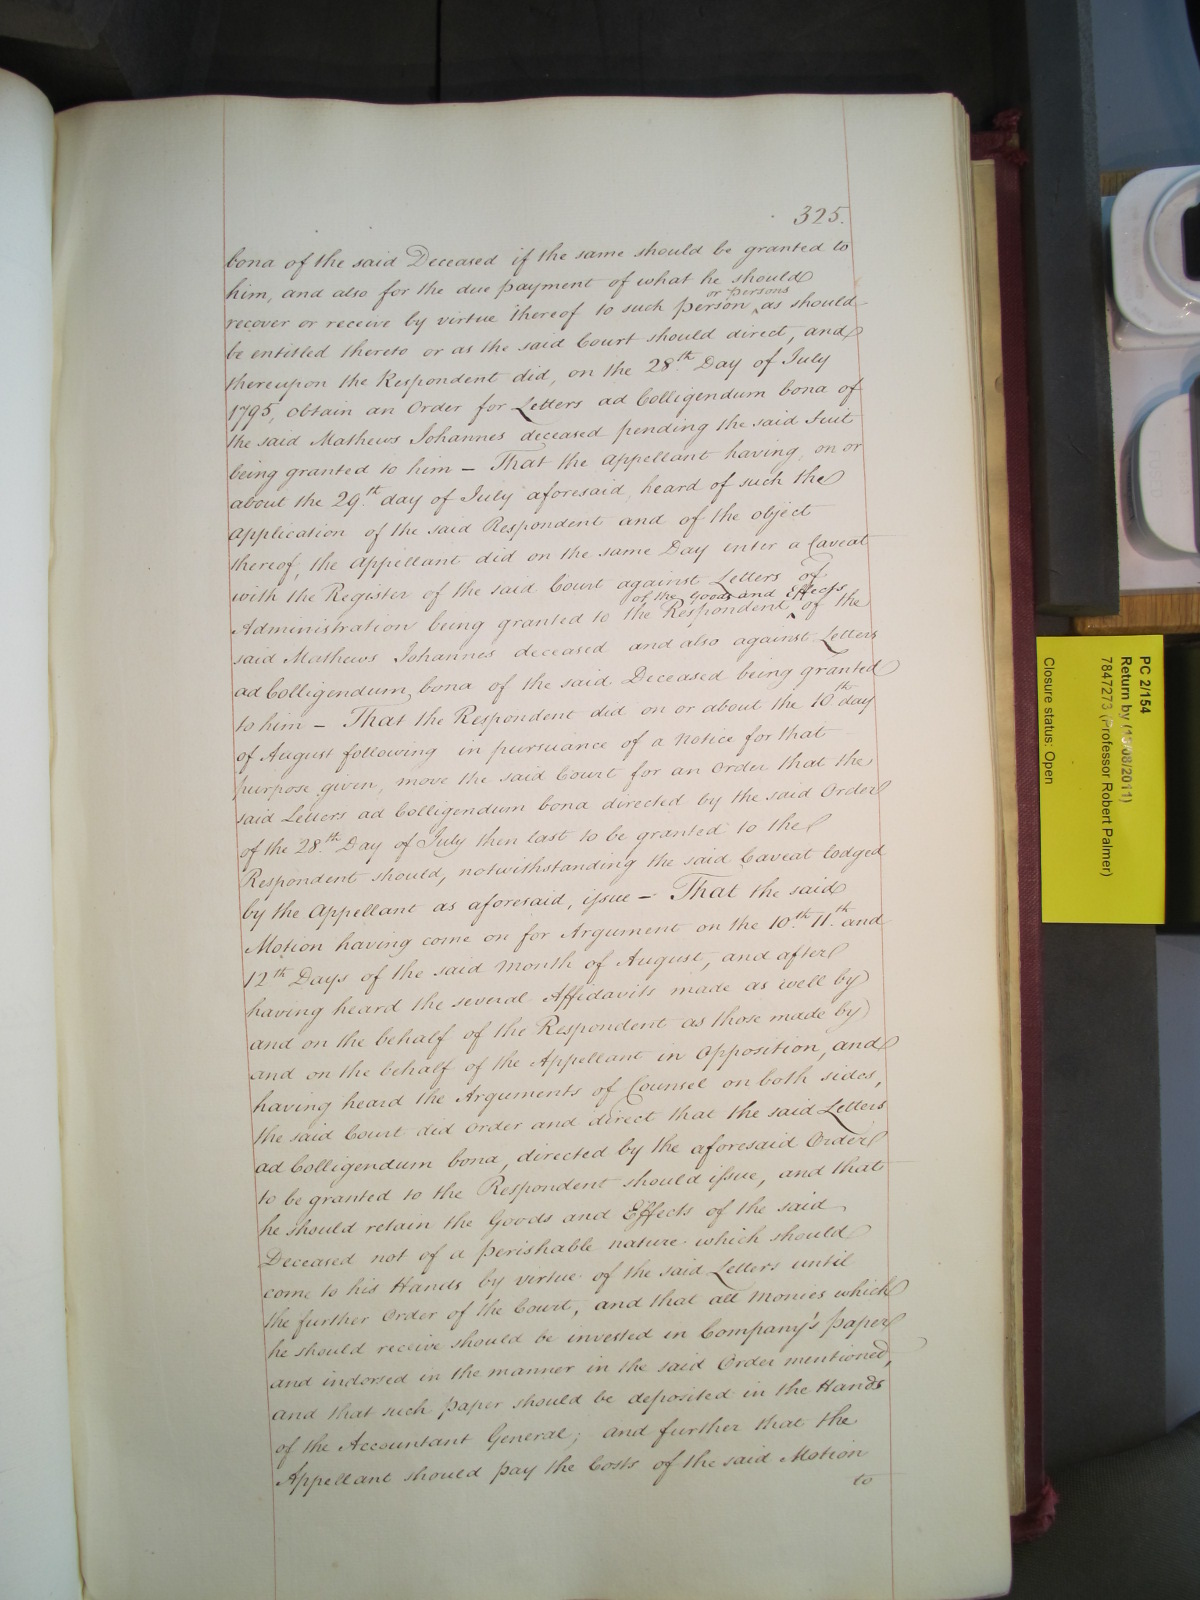 325.
bona of the said Deceased if the same should be granted to
him, and also for the due payment of what he should
or persons
recover or receive by virtue thereof to such person ‸ as should
be entitled thereto or as the said Court should direct, and
thereupon the Respondent did, on the 28th Day of July
1795, obtain an Order for Letters ad Colligendum bona of
the said Mathews Johannes deceased pending the said Suit
being granted to him – That the Appellant having, on or
about the 29th day of July aforesaid, heard of such the
Application of the said Respondent and of the object
thereof, the Appellant did on the same Day enter a Caveat
with the Register of the said Court against Letters of
of the Goods and Effects
Administration being granted to the Respondent ‸ of the
said Mathews Johannes deceased and also against Letters
ad Colligendum, bona of the said Deceased being granted
to him – That the Respondent did on or about the 10th day
of August following in pursuance of a Notice for that
purpose given, move the said Court for an Order that the
said Letters ad Colligendum bona directed by the said Order
of the 28th Day of July then last to be granted to the
Respondent should, notwithstanding the said Caveat lodged
by the Appellant as aforesaid, issue – That the said
Motion having come on for Argument on the 10th 11th and
12th Days of the said Month of August, and after
having heard the several Affidavits made as well by
and on the behalf of the Respondent as those made by
and on the behalf of the Appellant in Opposition, and
having heard the Arguments of Counsel on both sides,
the said Court did Order and direct that the said Letters
ad Colligendum bona, directed by the aforesaid Order
to be granted to the Respondent should issue, and that
he should retain the Goods and Effects of the said
Deceased not of a perishable nature which should
come to his Hands by virtue of the said Letters until
the further Order of the Court, and that all Monies which
he should receive should be invested in Company's Paper
and indorsed in the manner in the said Order mentioned,
and that such Paper should be deposited in the Hands
of the Accountant General; and further that the
Appellant should pay the Costs of the said Motion
to
PC 2/154
Return by (13/08/2011)
7847273 (Professor Robert Palmer)
Closure status: Open